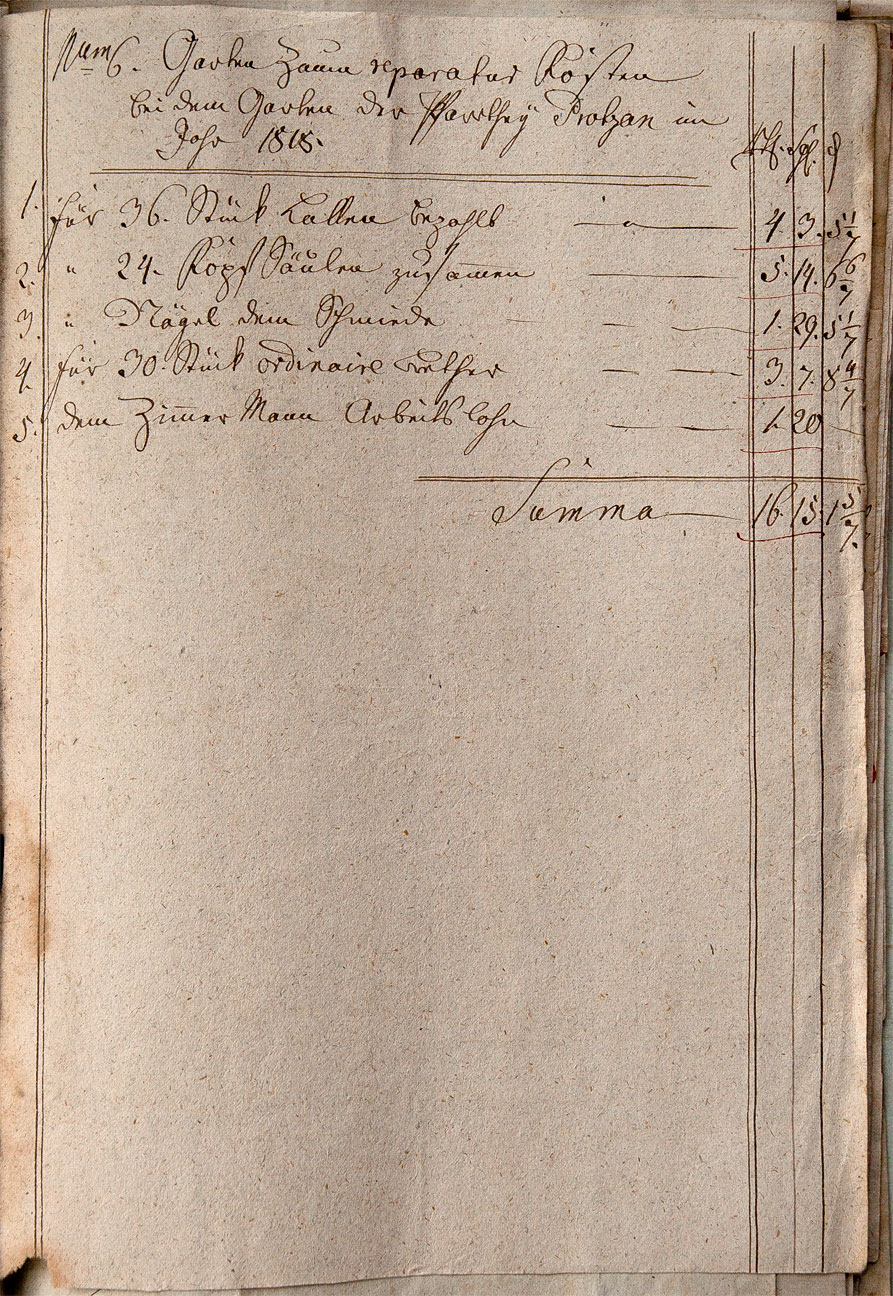 Num 6. Garten Zaun reparatur Kosten
bei dem Garten der Pfarrthey Protzan im
Jahr 1818.
Rth. Sgl. d
1. für 36. Stück Latten bezahlt 4. 3. 5 1/7
2. " 24. Kopf Säulen zusammen 5. 14. 6 6/7
3. " Nägel dem Schmiede 1. 29. 5 1/7
4. für 30. Stück ordinaire Brether 3. 7. 8 4/7
5. dem Zimer Mann Arbeitslohn 1. 20 —
Summa 16. 15. 1 5/7